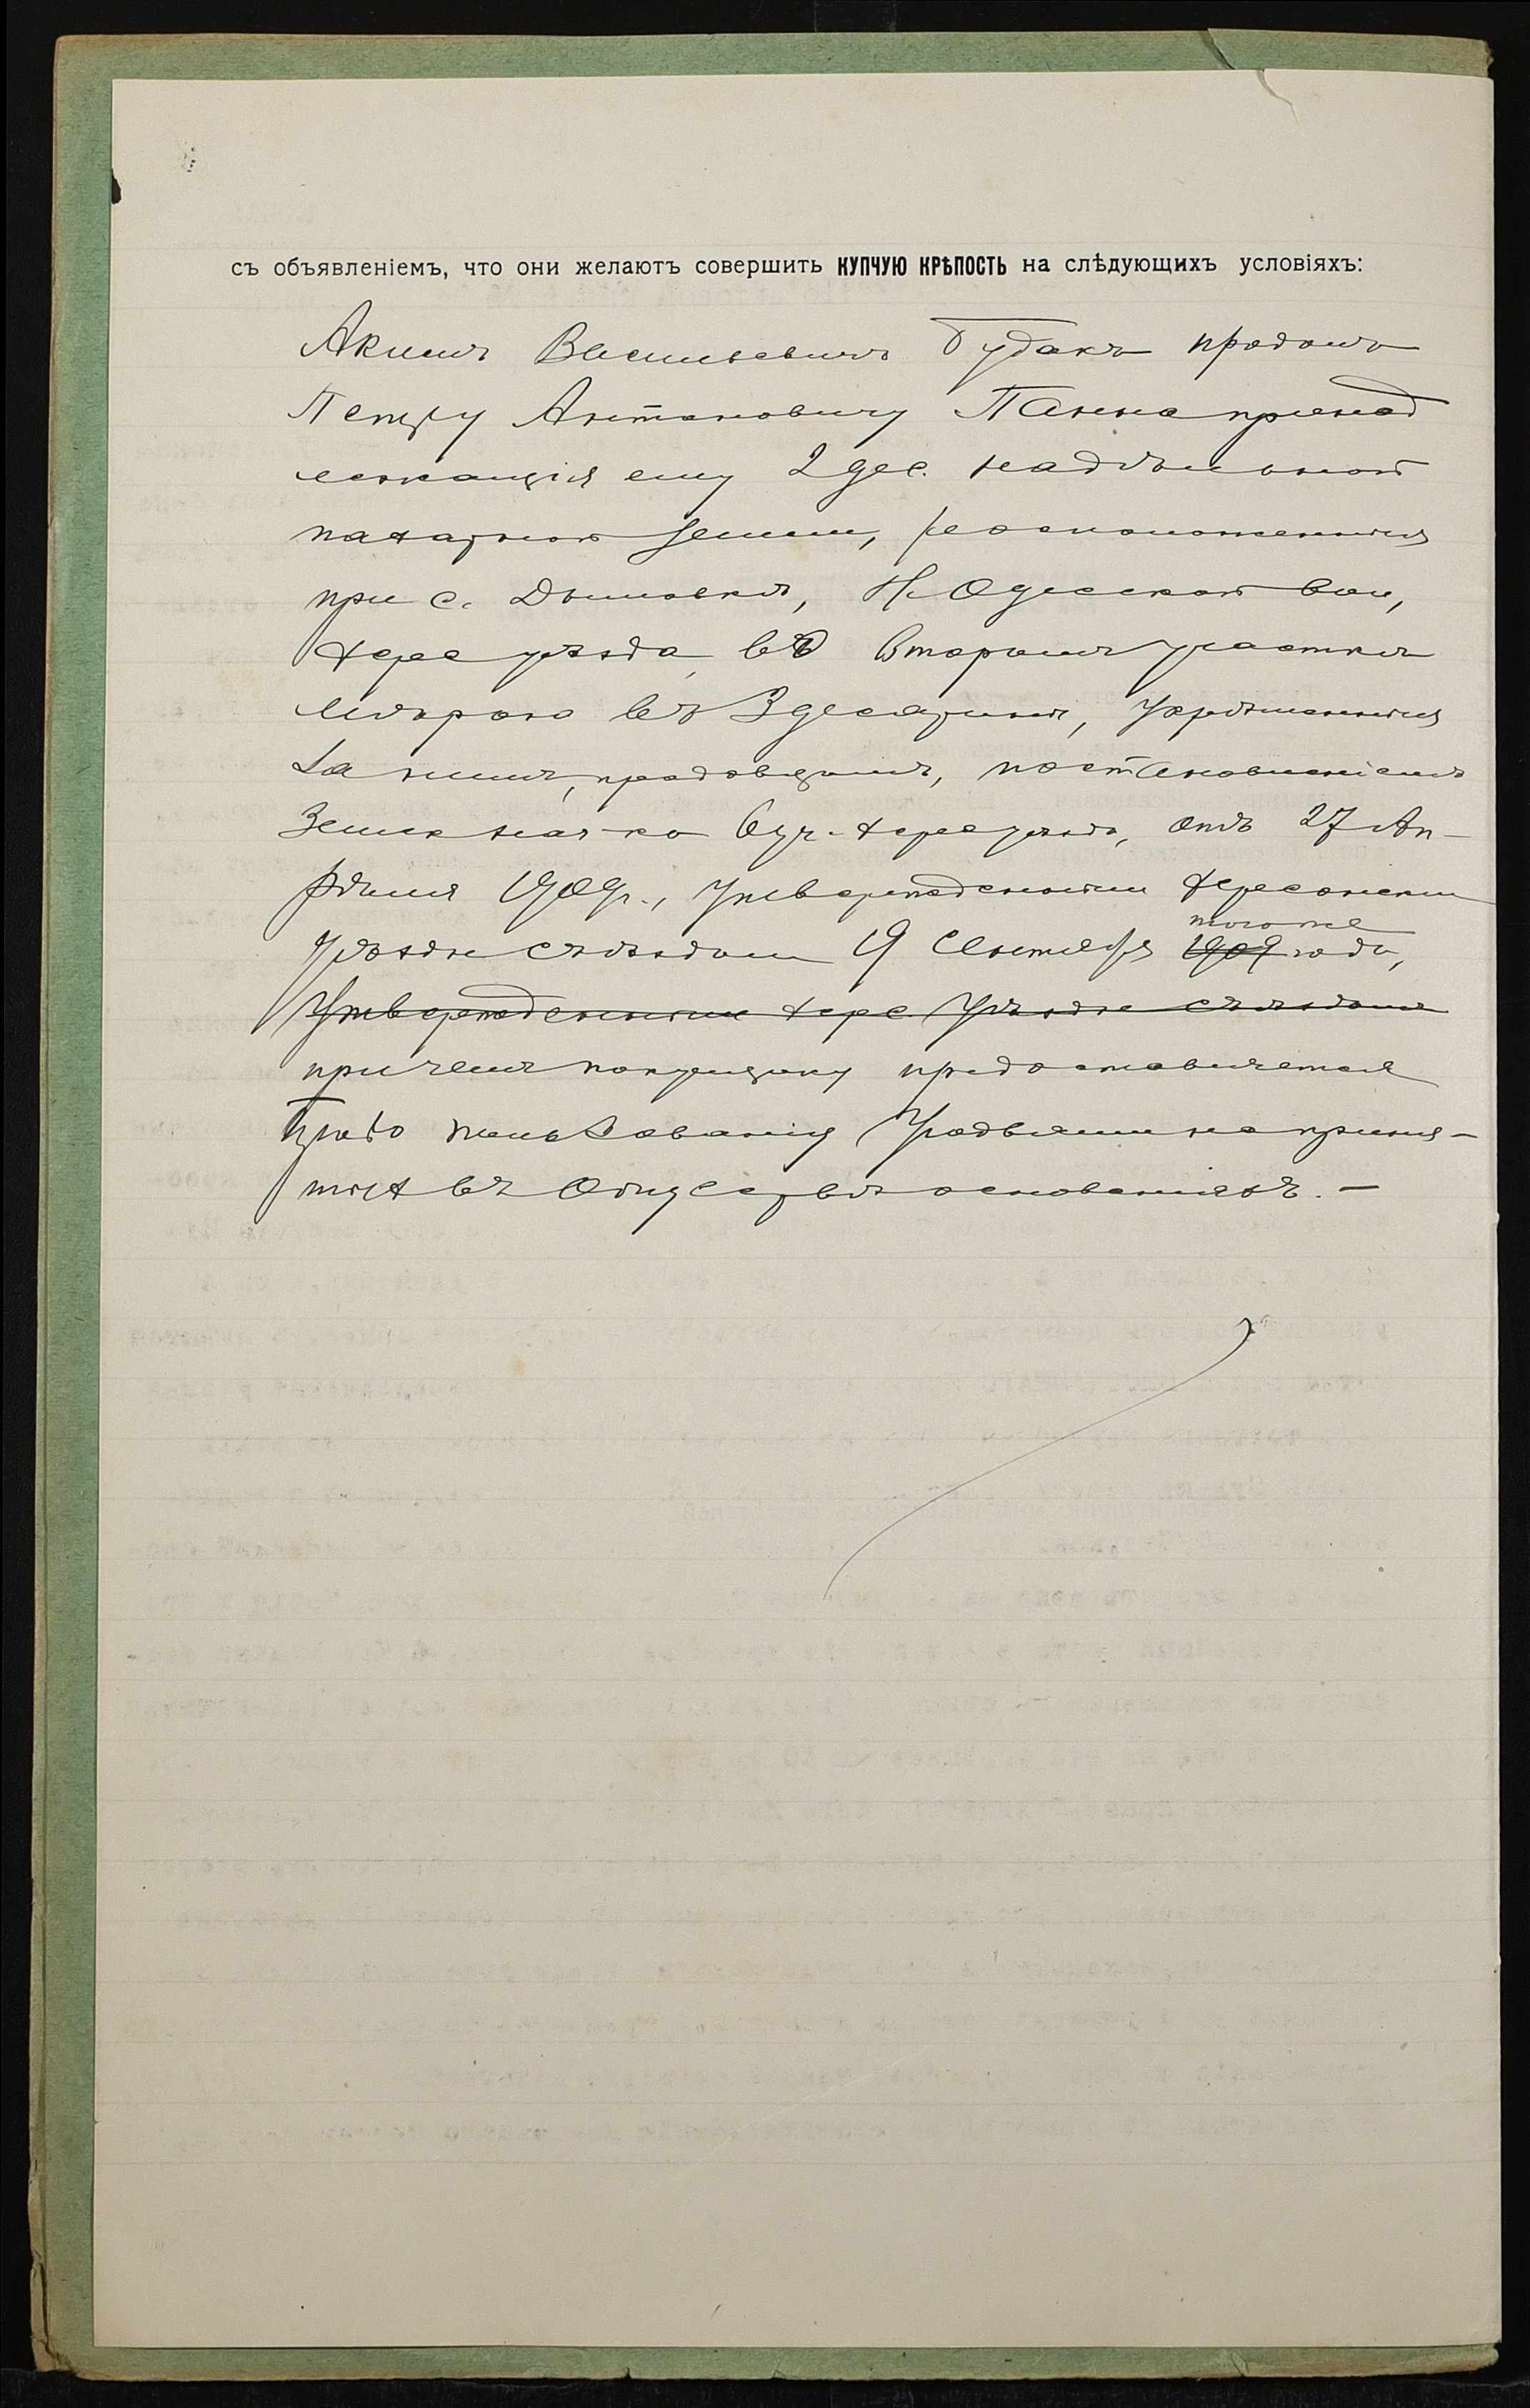 съ объявленіемъ, что они желаютъ совершить КУПЧУЮ КРѢПОСТЬ на слѣдующихъ условіяхъ:
Акимъ Васильевичъ Будакъ продалъ
Петру Антоновичу Панна принад
лежащія ему 2 дес. надѣльной
пахатной земли, расположенныя
при с. Дымовкѣ, Н. Одесской вол,
Херс уѣзда, въ второмъ участкѣ
мѣрою въ 3 десятины, укрѣпленныя
за нимъ, продавцомъ, постановленіемъ
Земск нач-ка 6 уч. Херс уѣзда, отъ 27 Ап-
рѣля 1909 г., утвержденнымъ Херсонским
Уѣздн съѣздом 19 Сентября 1909 тогоже года,
Утвержденнымъ Херс Уѣздн съѣздомъ
причемъ покупщику предоставляется
право пользованія угодьями на приня-
тыхъ въ обществѣ основаніяхъ. —